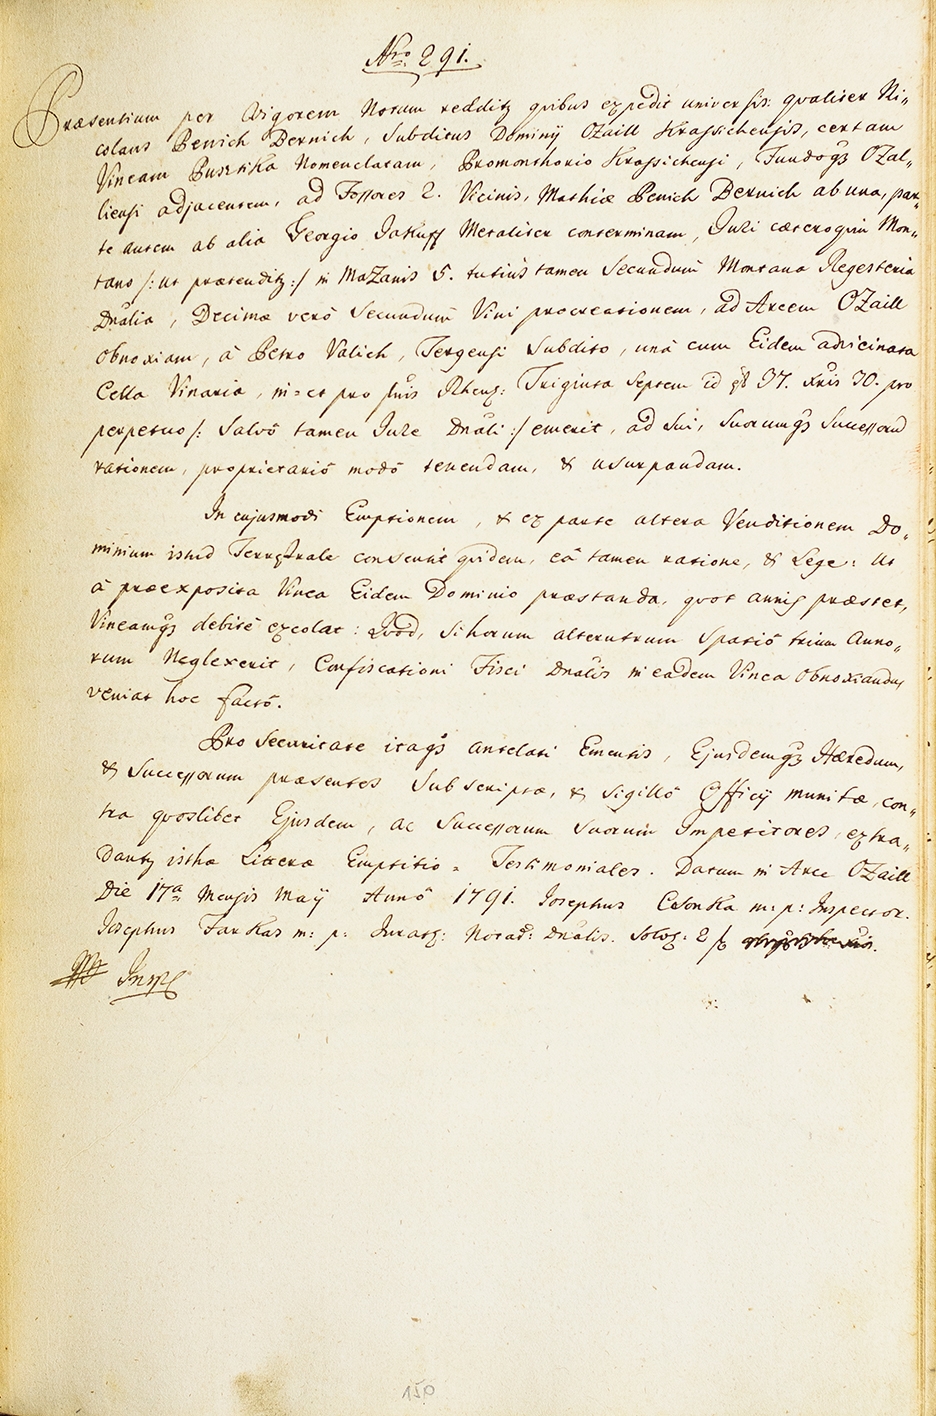 Nro 291.
Præsentium per Vigorem Notum redditq quibus expedit universis: qualiter Ni„
colaus Penich Dernich, Subditus Dominij OZaill Krassichensis, certam
Vineam Pustika Nomenclatam, Promonthorio Krassichensi, Fundoqȝ OZal„
liensi adjacentem, ad Fossores 2. Vicinis, Mathiæ Penich Dernich ab una, par„
te autem ab alia Georgio Jakuff Metaliter conterminam, Juri cæteroquin Mon„
tano /: ut prætenditq :/ in MaZanis 5. tutius tamen Secundum Montana Regesteria
Dnalia, Decimæ verò Secundum Vini procreationem, ad Arcem OZaill
obnoxiam, à Petro Valich, Tergensi Subdito, unà cum Eidem advicinata
Cella Vinaria, in= et pro flnis Rhens: Triginta Septem id est 37. Xris 30. pro
perpetuo /: Salvo tamen Jure Dnali :/ emerit, ad Sui, Suorumqȝ Successorum
rationem, proprietariô modô tenendam, & usurpandam.
In cujusmodi Emptionem, & ex parte altera Venditionem Do„
minium istud Terrestrale consensit quidem, eâ tamen ratione, & Lege: Ut
à præexposita Vinea Eidem Dominio præstanda, quot annis præstet,
Vineamqȝ debitè excolat: Quod, si horum alterutrum Spatiô trium Anno„
rum Neglexerit, Confiscationi Fisci Dnalis in eadem Vinea Obnoxiandus
veniat hoc factô.
Pro Securitate itaqȝ antelati Ementis, Ejusdemqȝ Hæredum,
& Successorum præsentes Subscriptæ, & Sigillô Officij munitæ, con„
tra quoslibet Ejusdem, ac Successorum Suorum Impetitores, extra„
dantq isthæ Litteræ Emptitio = Testimoniales. Datum in Arce OZaill
Die 17a Mensis Maÿ Annô 1791. Josephus Csonka m: p: Inspector.
Josephus Farkas m: p: Juratq: Notar: Dnalis. Solvq: 2 f
Insp
150